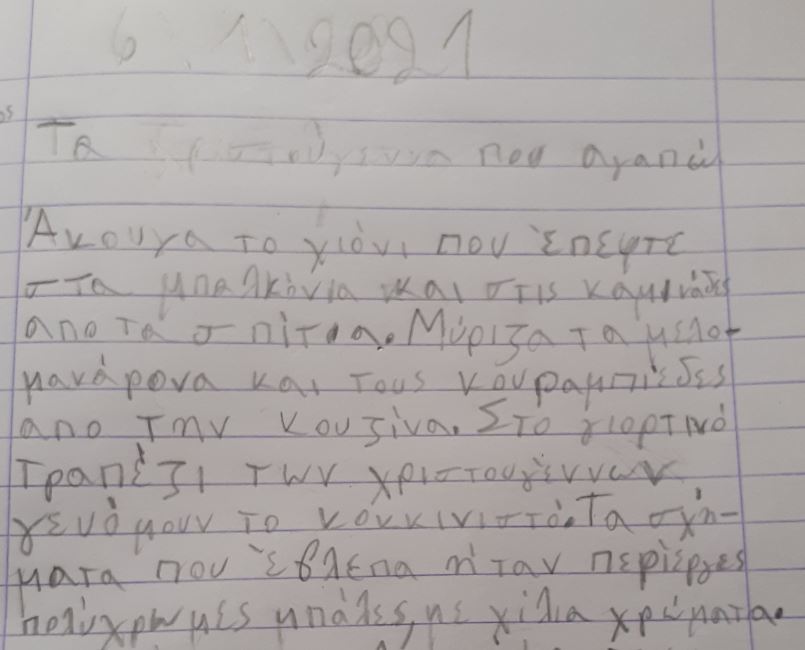 6 1 2021
Τα Χριστούγεννα που αγαπώ
Άκουγα το χιόνι που έπεφτε
στα μπαλκόνια και στις καμινάδες
απο τα σπίτια. Μύριζα τα μελο-
μακάρονα και τους κουραμπιέδες
απο την κουζίνα. Στο γιορτινό
τραπέζι των χριστουγέννων
γευόμουν το κόκκινιστό. Τα σχή-
ματα που έβλεπα ήταν περίεργες
πολύχρωμες μπάλες, με χίλια χρώματα.